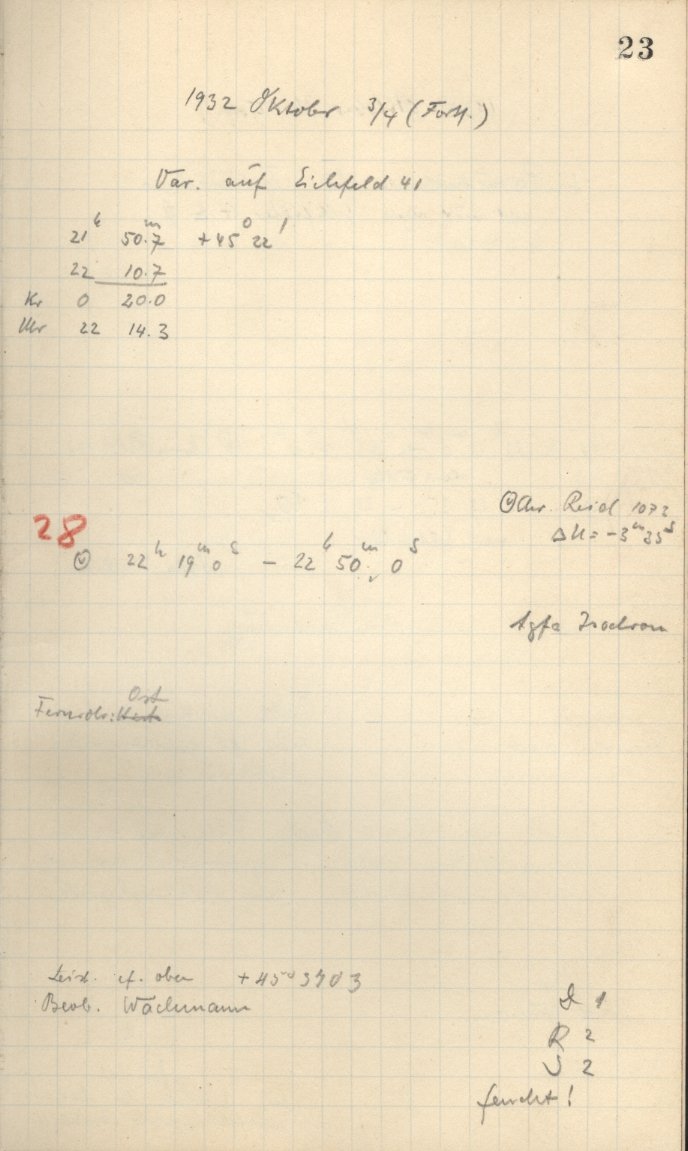 23
1932 Oktober 3/4 (Forts.)
Var. auf Eichfeld 41
21h 50.7m +45° 22'
22 10.7
Kr 0 20.0
Uhr 22 14.3
Chr. Reid 1072
ΔU = -3m 35s
28
⊙ 22h 19m 0s - 22h 50m 0s
Agfa Isochrom
Ost
Fernrohr:
Leitst. cf. oben +45° 3903
Beob. Wachmann
D 1
R 2
U 2
feucht!